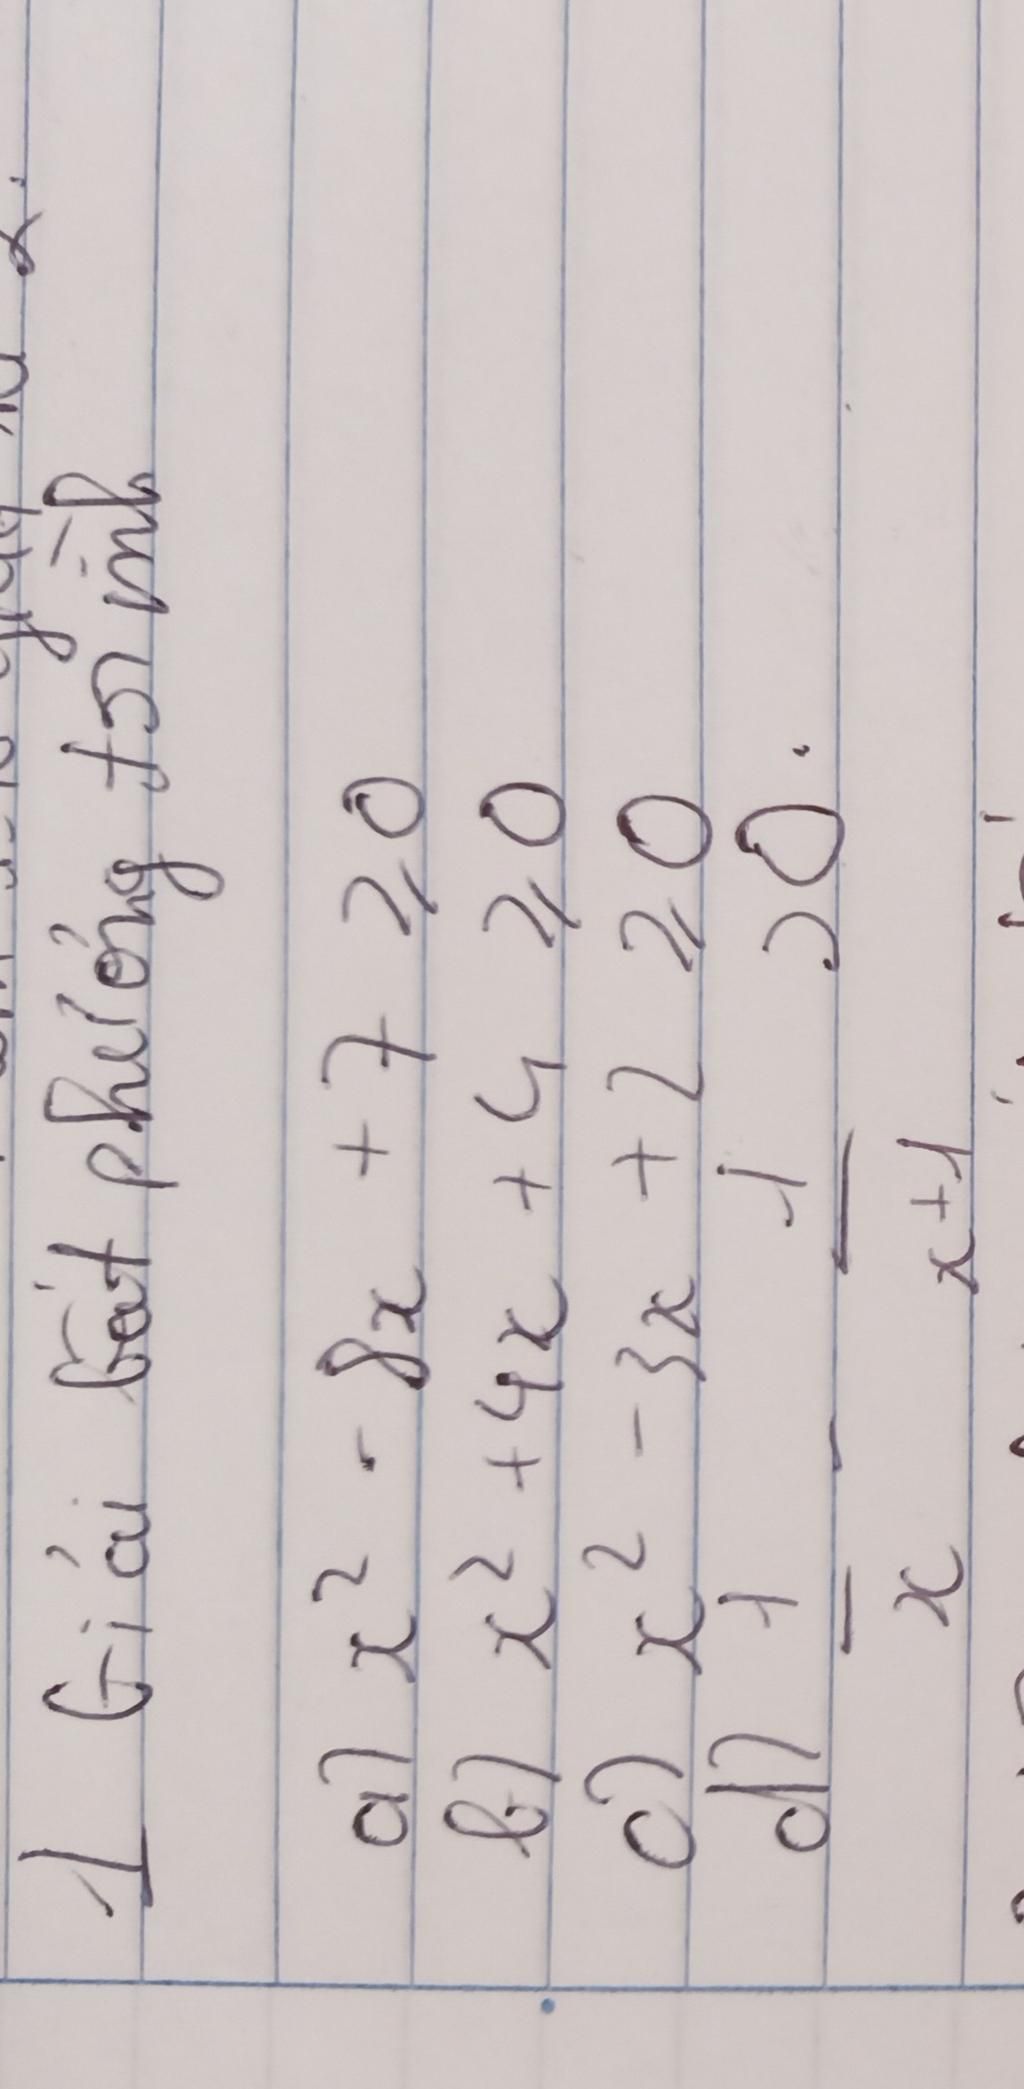 1 Giải bất phương trình
a) x² - 8x + 7 ≥ 0
b) x² + 4x + 4 ≥ 0
c) x² - 3x + 2 ≥ 0
d) 1/x - 1/(x+1) > 0.